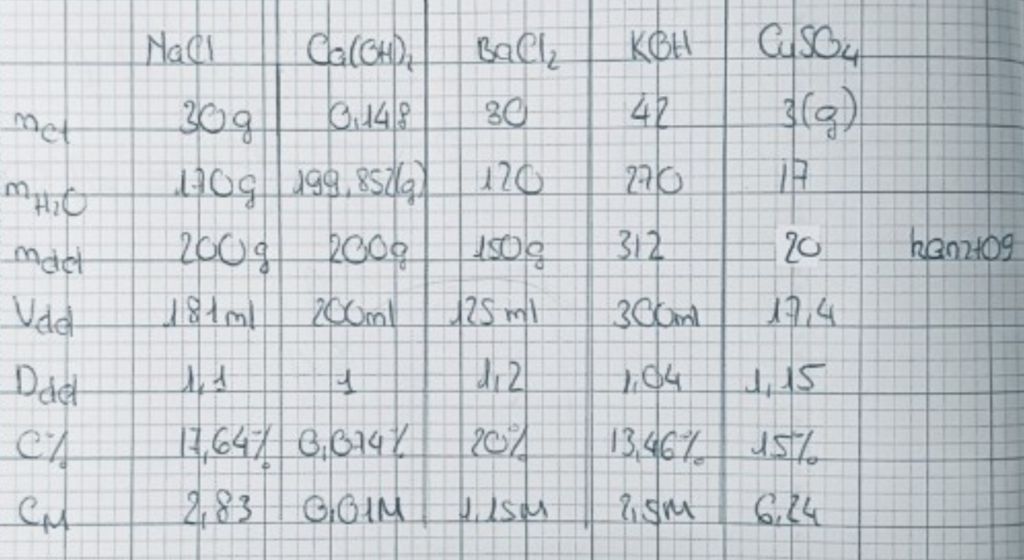 NaCl Ca(OH)₂ BaCl₂ KOH CuSO₄
mct 30g 0,148 30 42 3(g)
mH₂O 170g 199,852(g) 120 270 17
mdd 200g 200g 150g 312 20
Vdd 181ml 200ml 125ml 300ml 17,4
Ddd 1,1 1 1,2 1,04 1,15
C% 17,64% 0,074% 20% 13,46% 15%
CM 2,83 0,01M 1,15M 2,5M 6,24